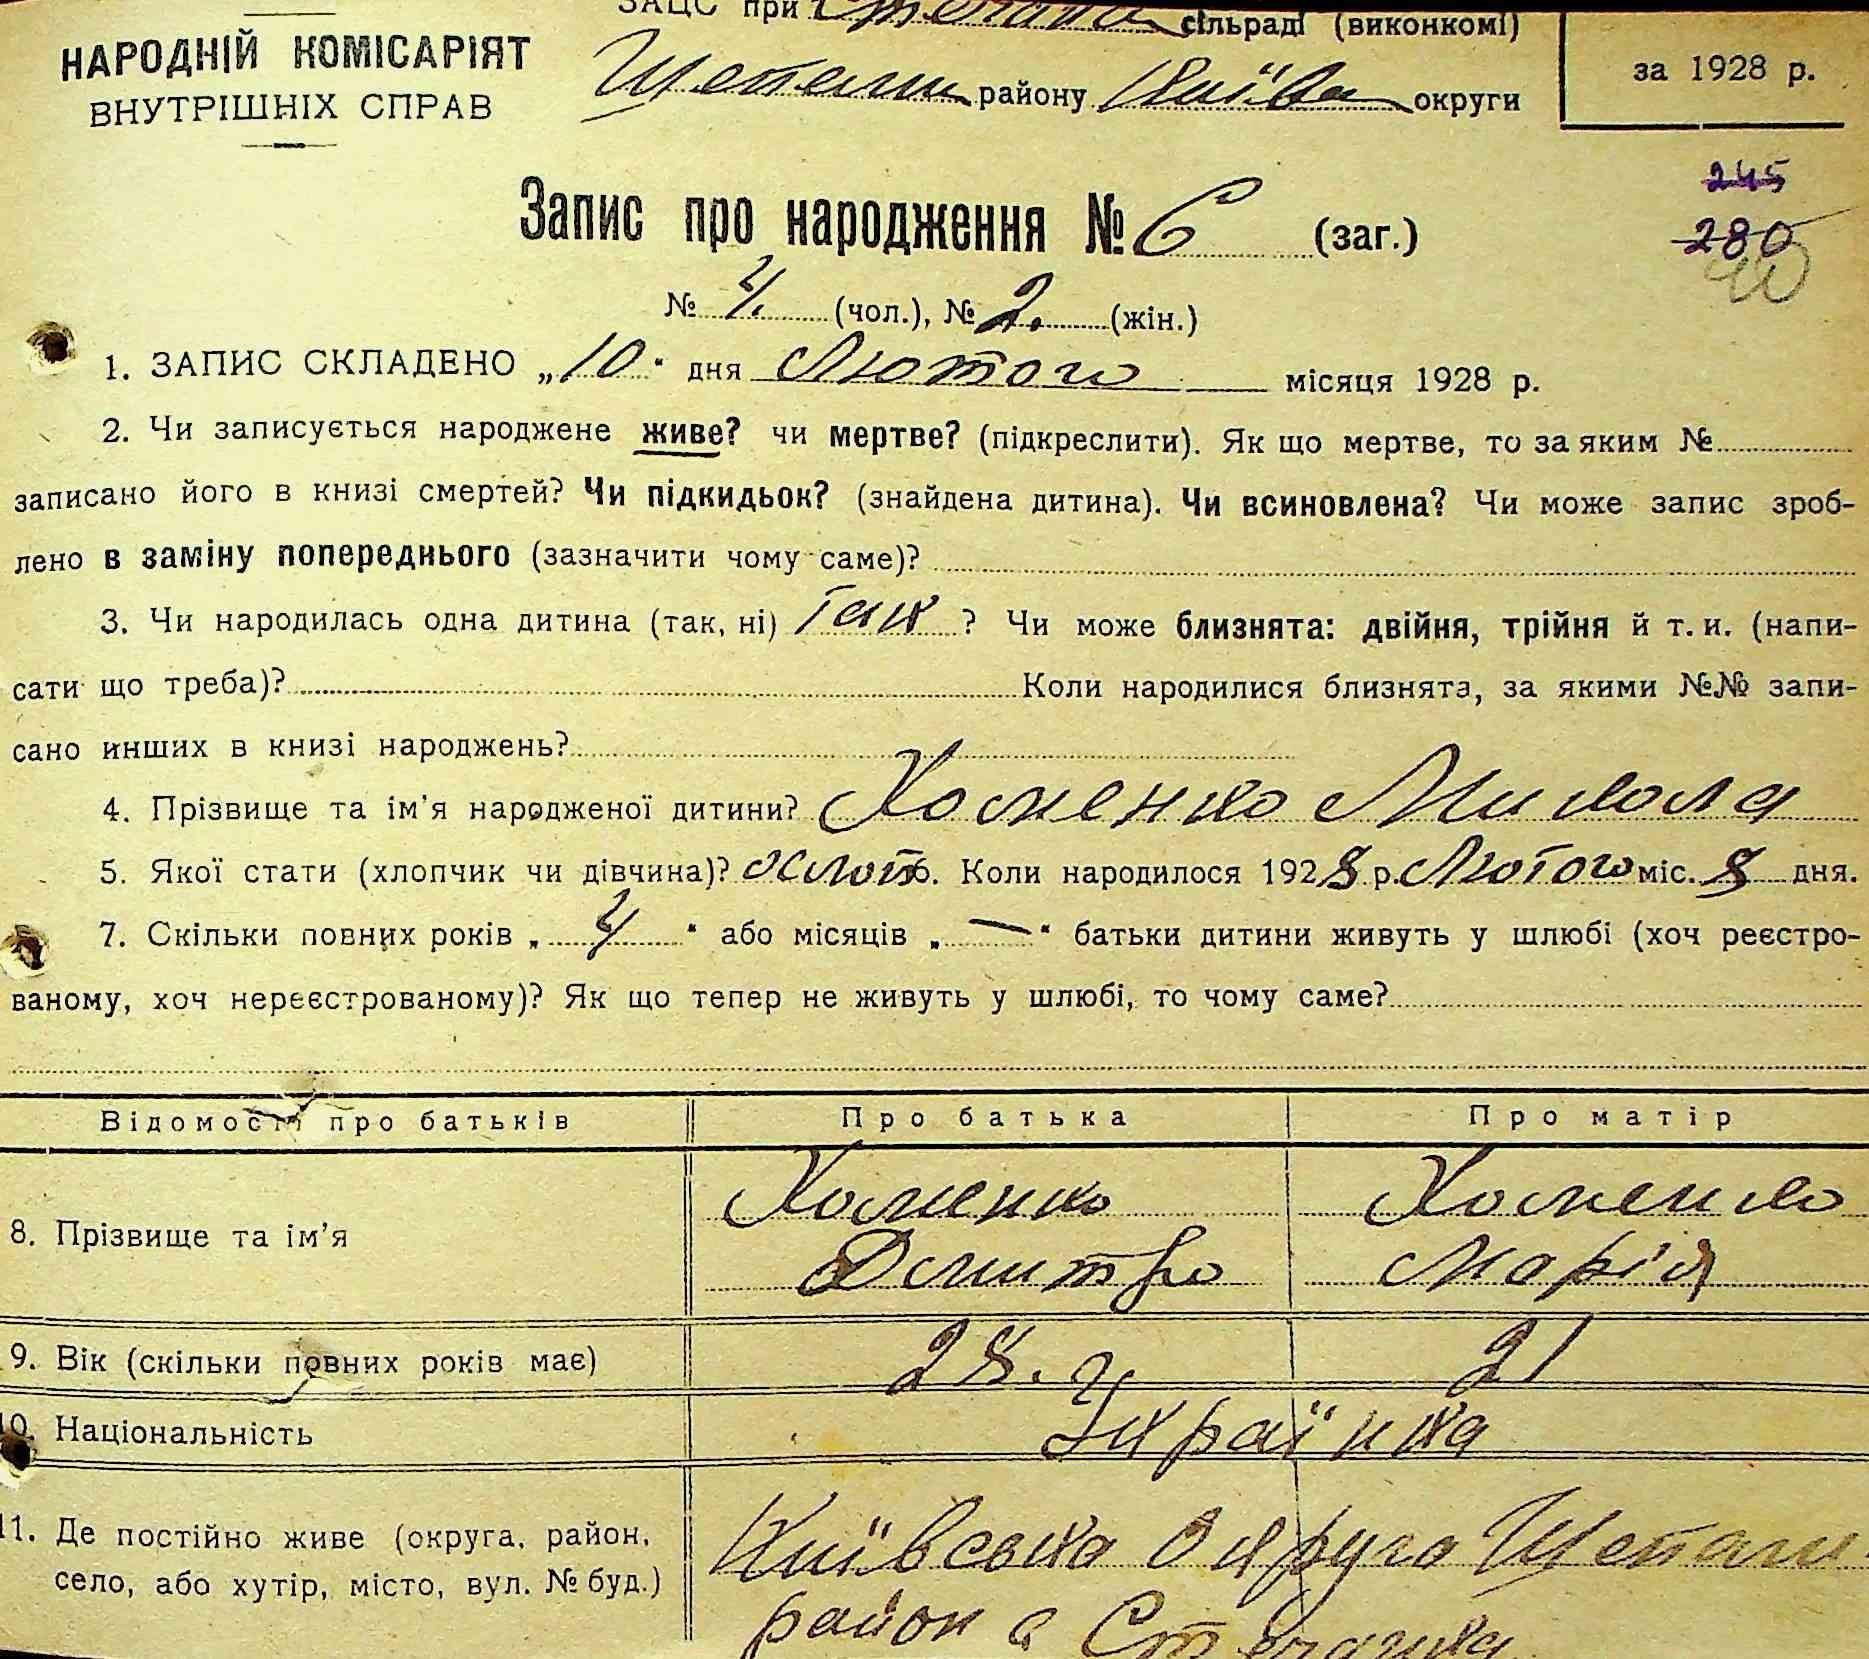 НАРОДНІЙ КОМІСАРІЯТ
ВНУТРІШНІХ СПРАВ
ЗАЦС при сільраді (виконкомі)
району округи
за 1928 р.
245
280
40
Запис про народження № 6 (заг.)
№ 4. (чол.), № 2. (жін.)
1. ЗАПИС СКЛАДЕНО „10“ дня Лютого місяця 1928 р.
2. Чи записується народжене живе? чи мертве? (підкреслити). Як що мертве, то за яким №
записано його в книзі смертей? Чи підкидьок? (знайдена дитина). Чи всиновлена? Чи може запис зроб-
лено в заміну попереднього (зазначити чому саме)?
3. Чи народилась одна дитина (так, ні) Так ? Чи може близнята: двійня, трійня й т. и. (напи-
сати що треба)? Коли народилися близнята, за якими №№ запи-
сано инших в книзі народжень?
4. Прізвище та ім’я народженої дитини? Хоменко Микола
5. Якої стати (хлопчик чи дівчина)? Хлопч. Коли народилося 1928 р. Лютого міс. 8 дня.
7. Скільки повних років „4“ або місяців „—“ батьки дитини живуть у шлюбі (хоч реєстро-
ваному, хоч нереєстрованому)? Як що тепер не живуть у шлюбі, то чому саме?
Відомости про батьків Про батька Про матір
8. Прізвище та ім’я
Хоменко Хоменко
Дмитро Марія
9. Вік (скільки повних років має) 21
10. Національність Українка
11. Де постійно живе (округа, район,
село, або хутір, місто, вул. № буд.)
Київська Округа
район с